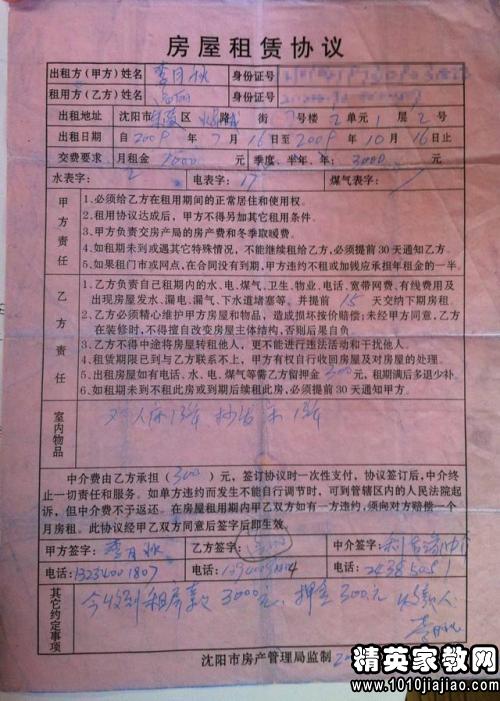 房屋租赁协议
出租方（甲方）姓名 李月秋 身份证号
租用方（乙方）姓名 身份证号
出租地址 沈阳市 区 路 街 7号楼2单元1层2号
出租日期 自2009年7月16日至2009年10月16日止
交费要求 月租金1000元 季度、半年、年：3000元
水表字：2 电表字：17 煤气表字：
甲方责任
1.必须给乙方在租用期间的正常居住和使用权。
2.租用协议达成后，甲方不得另加其它租用条件。
3.甲方负责交房产局的房产费和冬季取暖费。
4.如租期未到或遇其它特殊情况，不能继续租给乙方，必须提前30天通知乙方。
5.如果租门市或网点，在合同没有到期，甲方违约不租或加钱应承担年租金的一半。
乙方责任
1.乙方负责自己租期内的水、电、煤气、卫生、物业、电话、宽带网费、有线费用及
出现房屋发水、漏电、漏气、下水道堵塞等。并提前15天交纳下期房租。
2.乙方必须精心维护甲方房屋和物品，造成损坏按价赔偿；未经甲方同意，乙方
在装修时，不得擅自改变房屋主体结构，否则后果自负。
3.乙方不得中途将房屋转租他人，更不能进行违法活动和干扰他人。
4.租赁期限已到与乙方联系不上，甲方有权自行收回房屋及对房屋的处理。
5.出租房屋如有电话、水、电、煤气等需乙方留押金300元，租期满后多退少补。
6.如租期未到不租此房或到期后续租此房，必须提前30天通知甲方。
室内物品
双人床1张
中介费由乙方承担（300）元，签订协议时一次性支付，协议签订后，中介终
止一切责任和服务。如单方违约而发生不能自行调节时，可到管辖区内的人民法院起
诉，但中介费不予返还。在房屋租用期内甲乙双方如有一方违约，须向对方赔偿一个
月房租。此协议经甲乙双方同意后签字后即生效。
甲方签字：李月秋 乙方签字： 中介签字：
电话：13234001807 电话： 电话：
其它约定事项
今收到租房款3000元、押金300元 收款人：
李月秋
沈阳市房产管理局监制
精英家教网
www.1010jiajiao.com